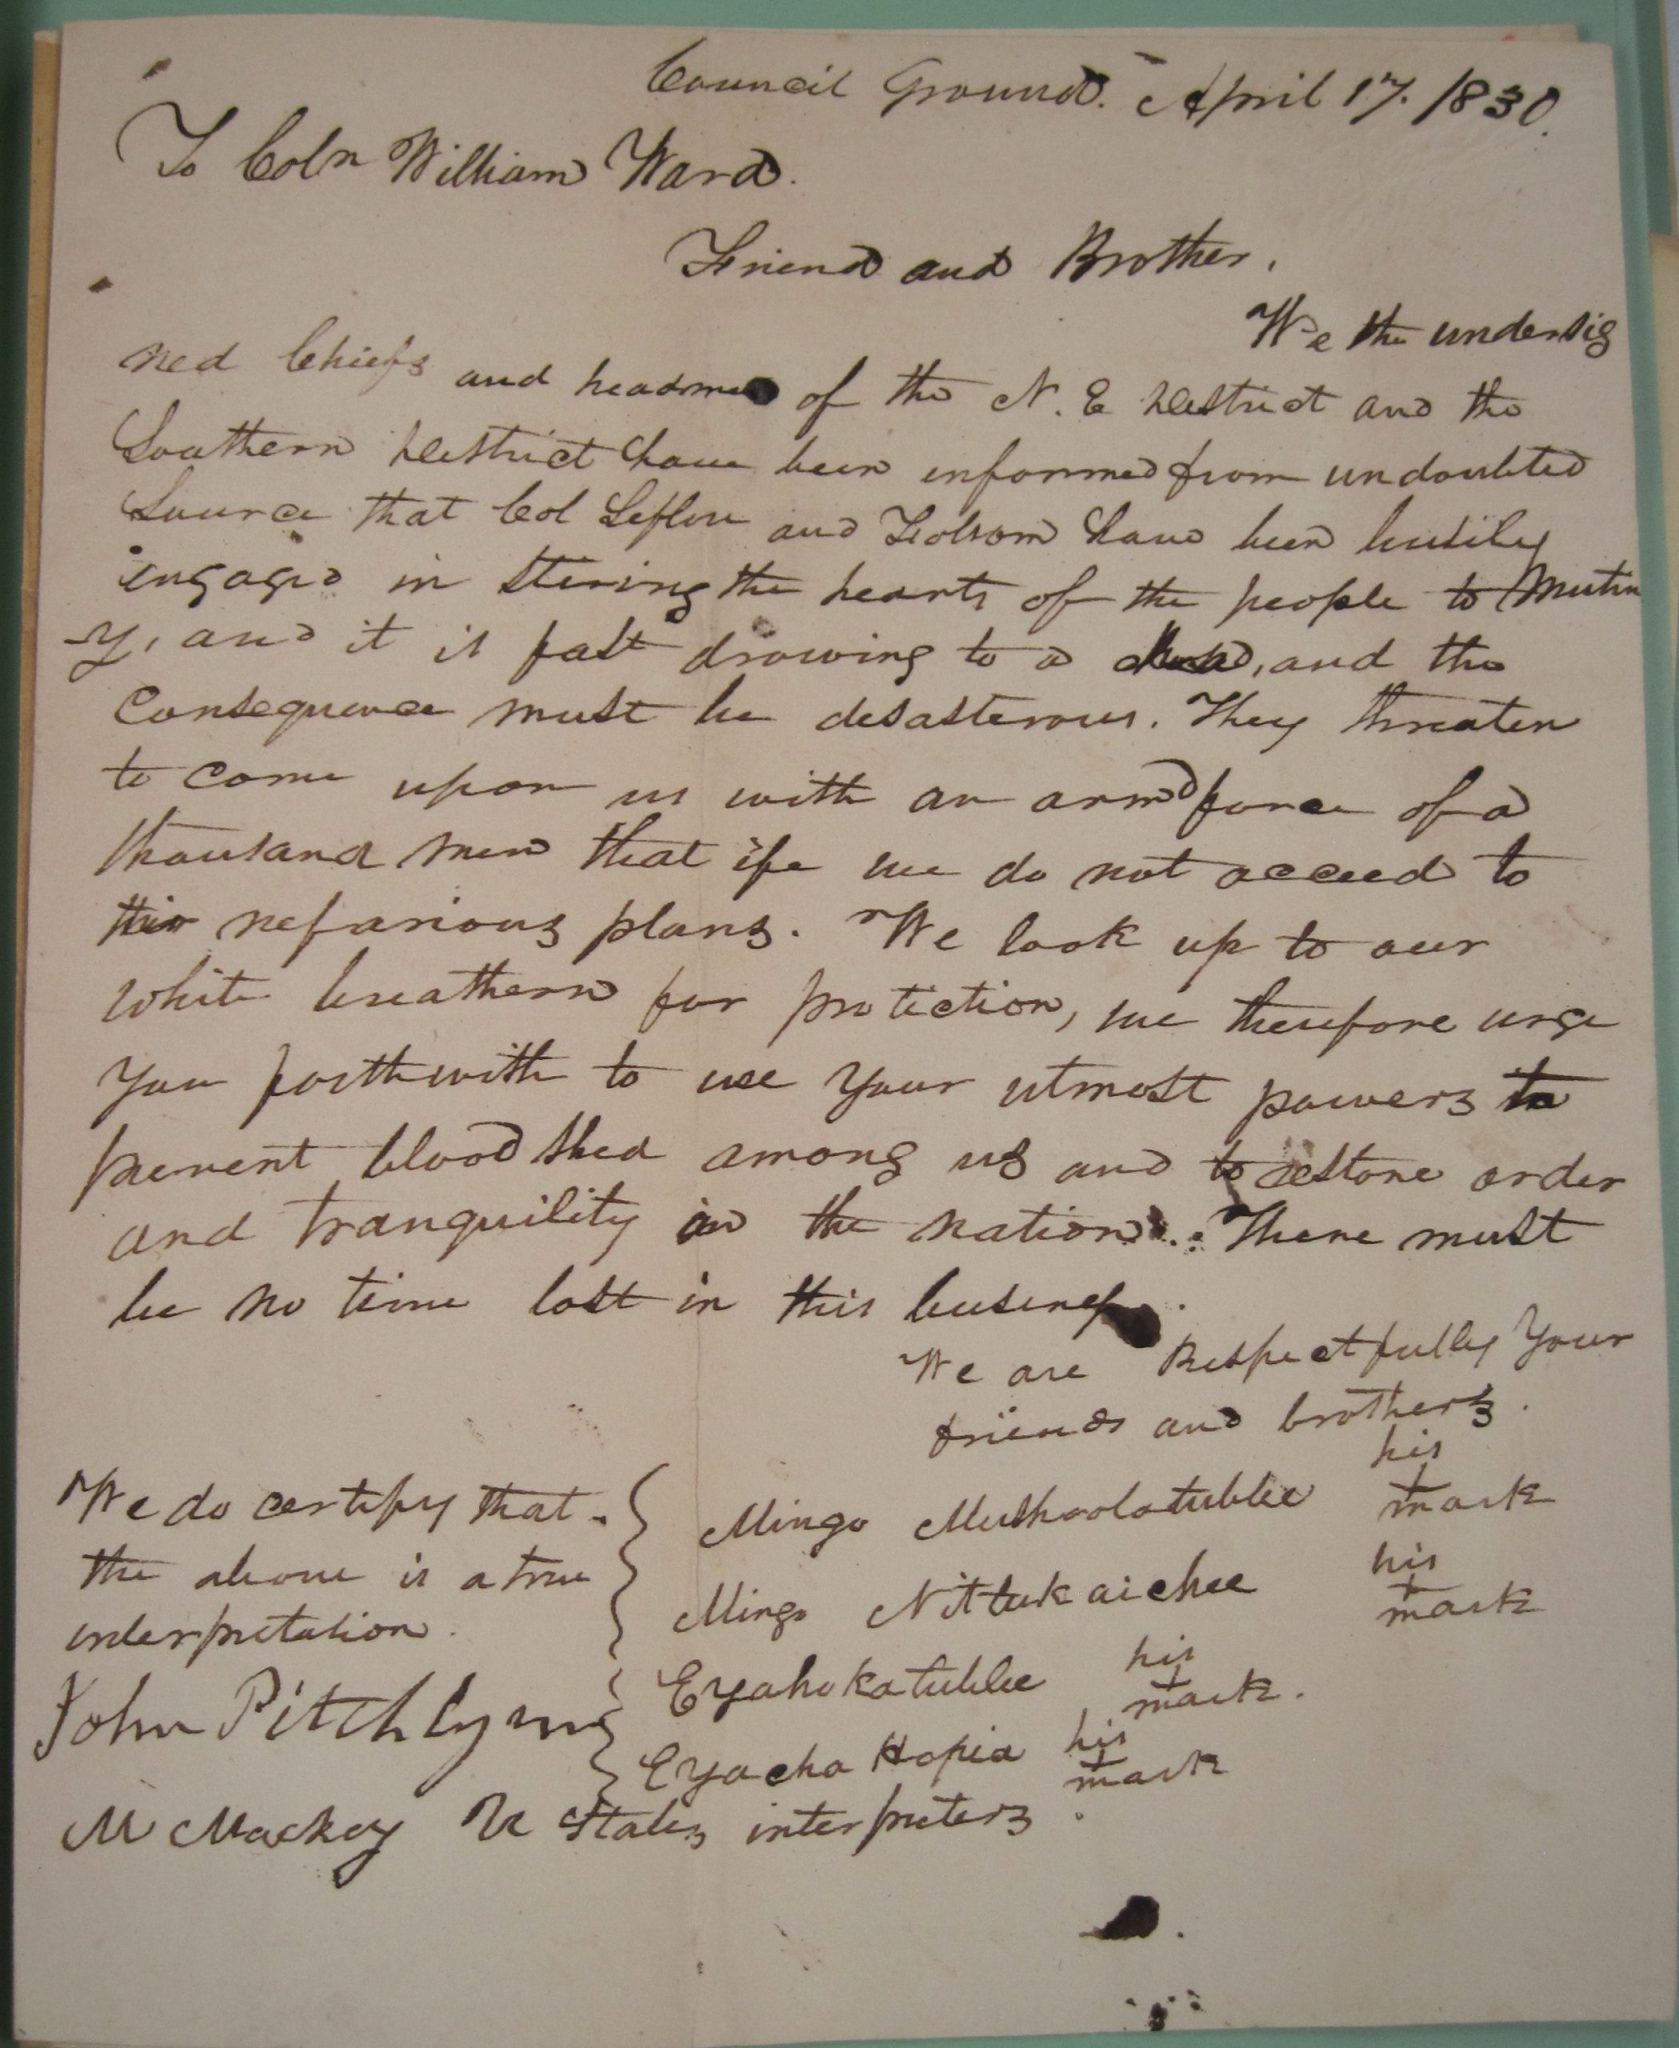 Council Ground. April 17. 1830.
To Coln William Ward.
Friend and Brother,
We the undersig
ned Chiefs and headmen of the N. E District and the
Southern District have been informed from undoubted
Source that Col Leflore and Folsom have been busily
engaged in stiring the hearts of the people to Mutin
-y, and it is fast drawing to a head, and the
Consequence must be desasterous. They threaten
to come upon us with an armd force of a
thousand men that if we do not acceed to
their nefarious plans. We look up to our
white breathern for protection, we therefore urge
you forthwith to use your utmost powers to
prevent blood shed among us and to restore order
and tranquility in the nation. There must
be no time lost in this business.
We are Respectfully Your
friends and brothers.
We do certify that
the above is a true
interpretation.
John Pitchlynn
Mingo Mushoolatubbee his mark
Mingo Nittukaichee his mark
Eyahokatubbee his mark.
Eyacha Hopia his mark
M Mackey U States interpreters.